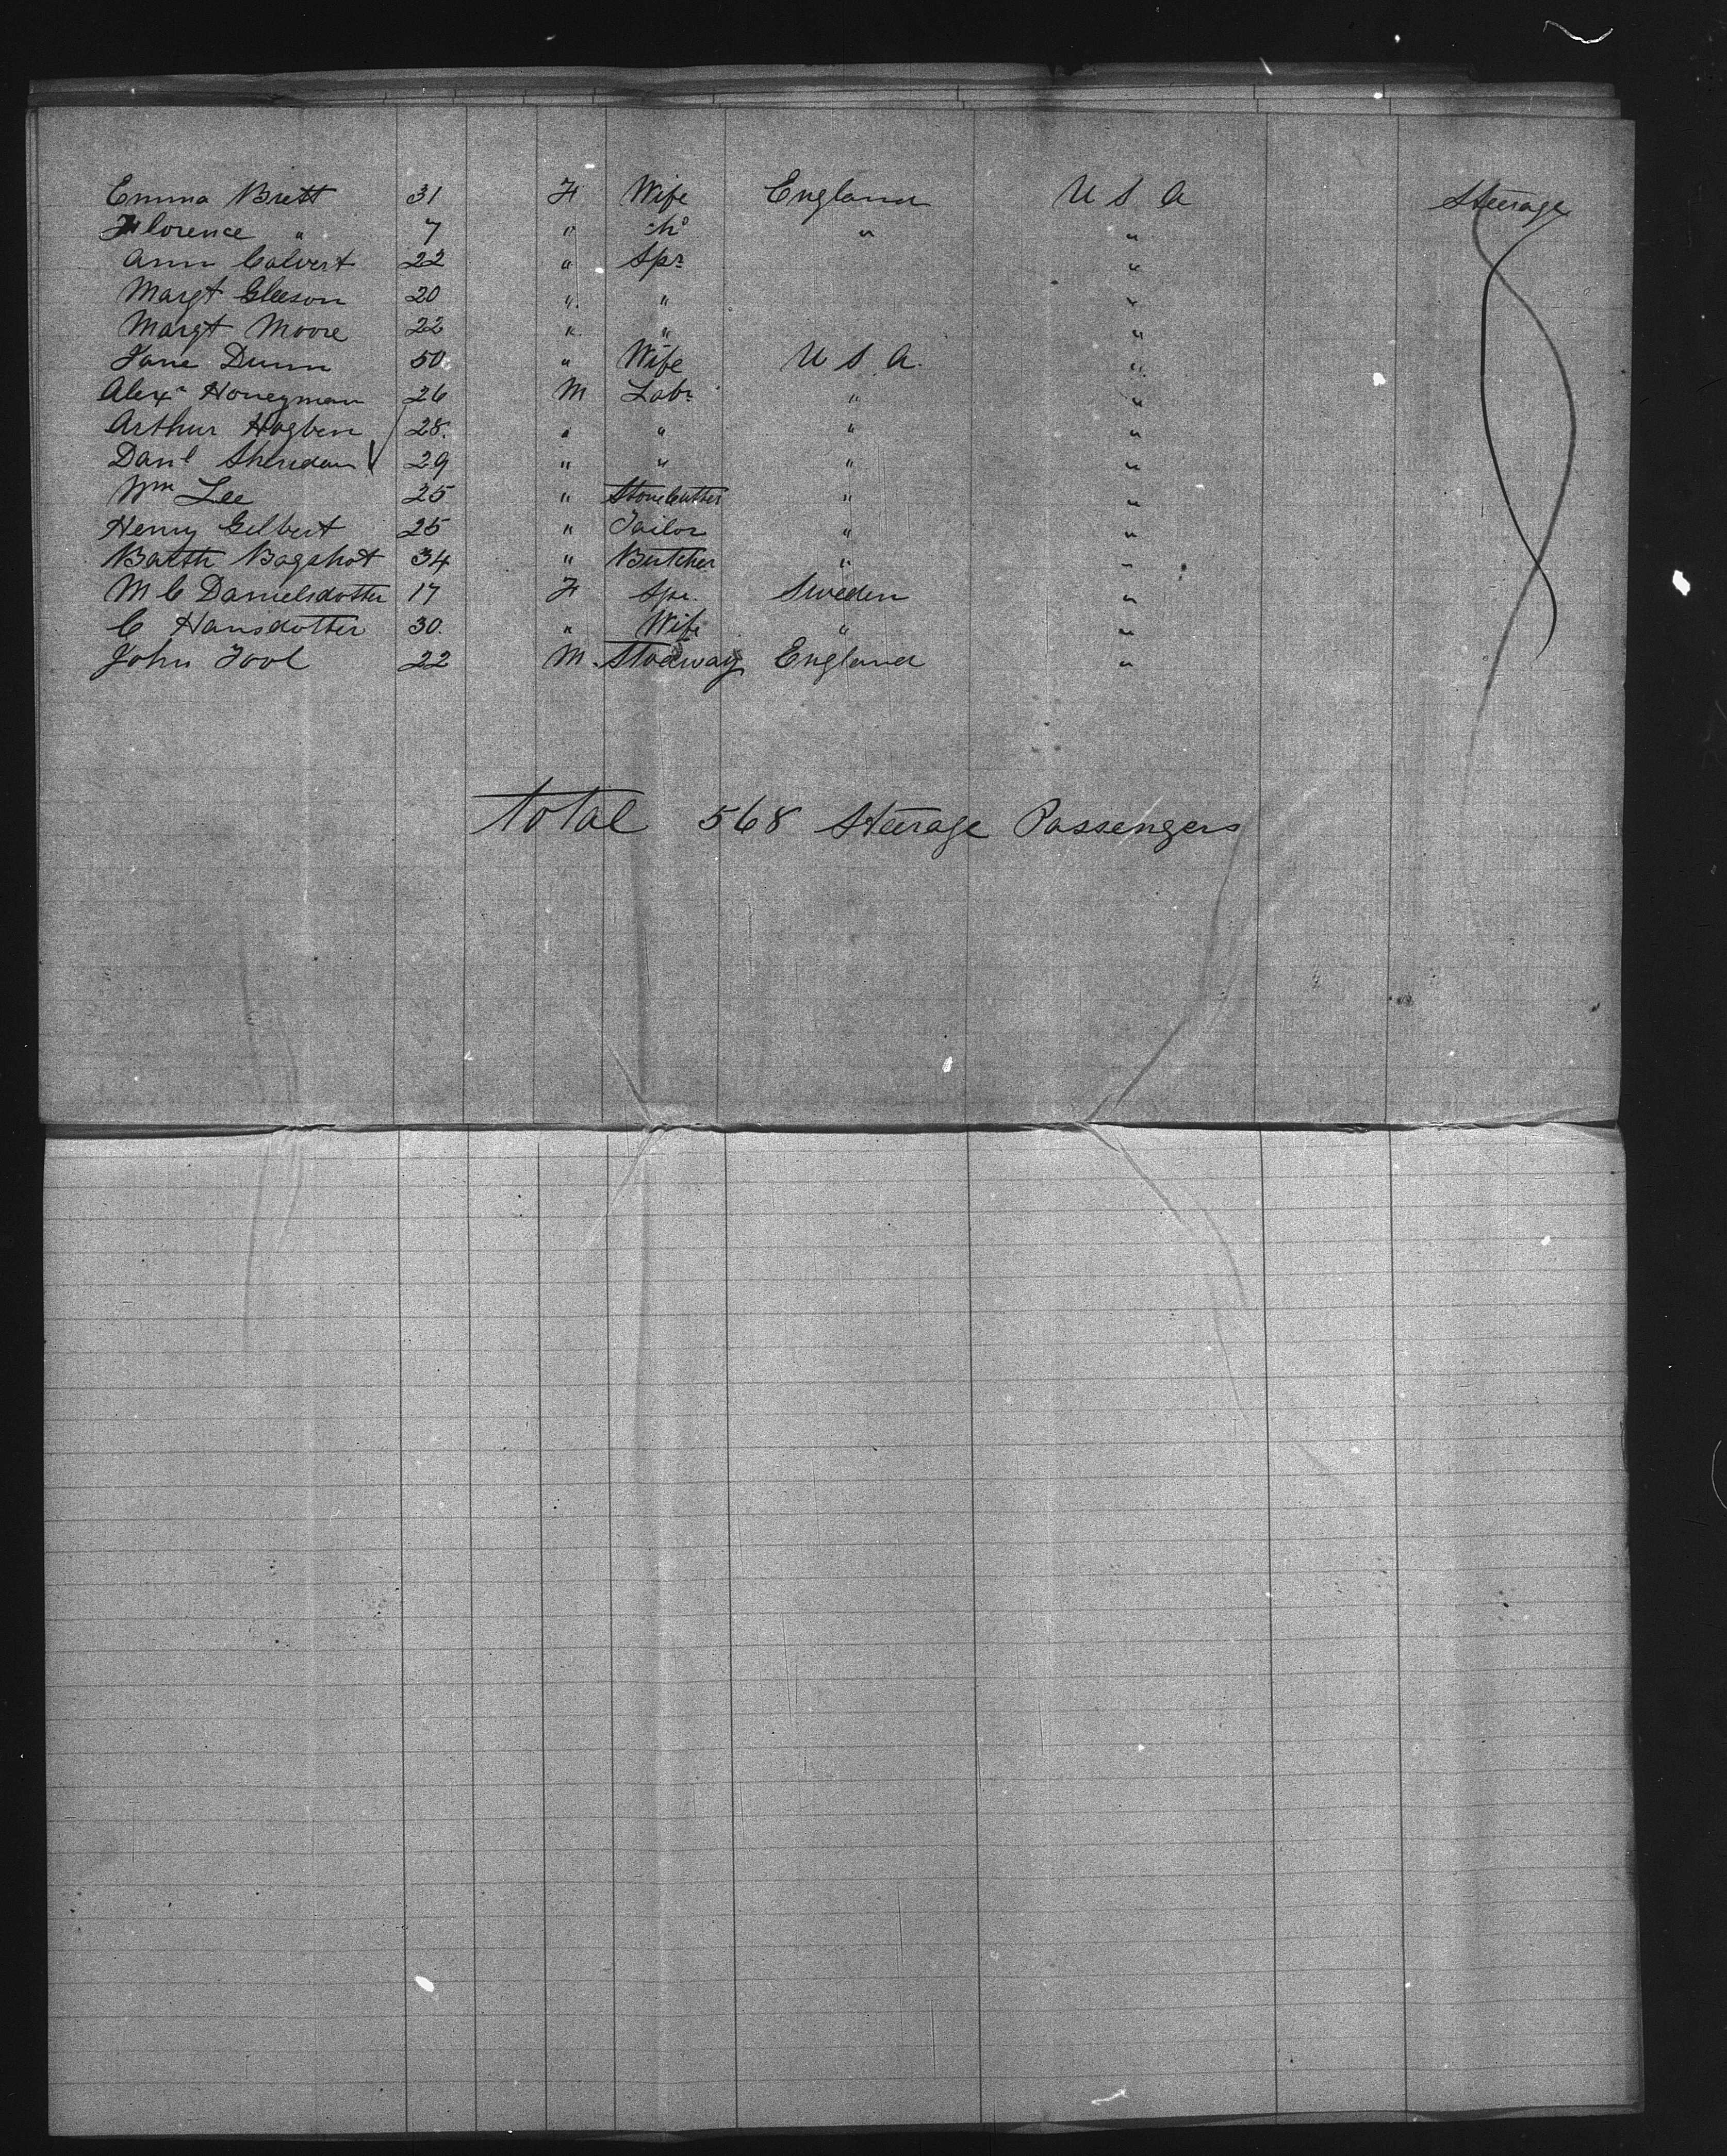 Emma Brett 31 F Wife England U S A Steerage
Florence " 7 " Chd " "
Ann Calvert 22 " Spr "
Margt Gleeson 20 " " "
Margt Moore 22 " " "
Jane Dunn 50 " Wife U S A. "
Alexr Honeyman 26 M Labr " "
Arthur Hogben 28. " " " "
Danl Sheridan 29 " " " "
Wm Lee 25 " Stonecutter " "
Henry Gilbert 25 " Tailor " "
Barth Bagshot 34 " Butcher " "
M C Danielsdotter 17 F Spr. Sweden "
C Hansdotter 30. " Wife " "
John Tool 22 M. Stodway England "
total 568 Steerage Passengers